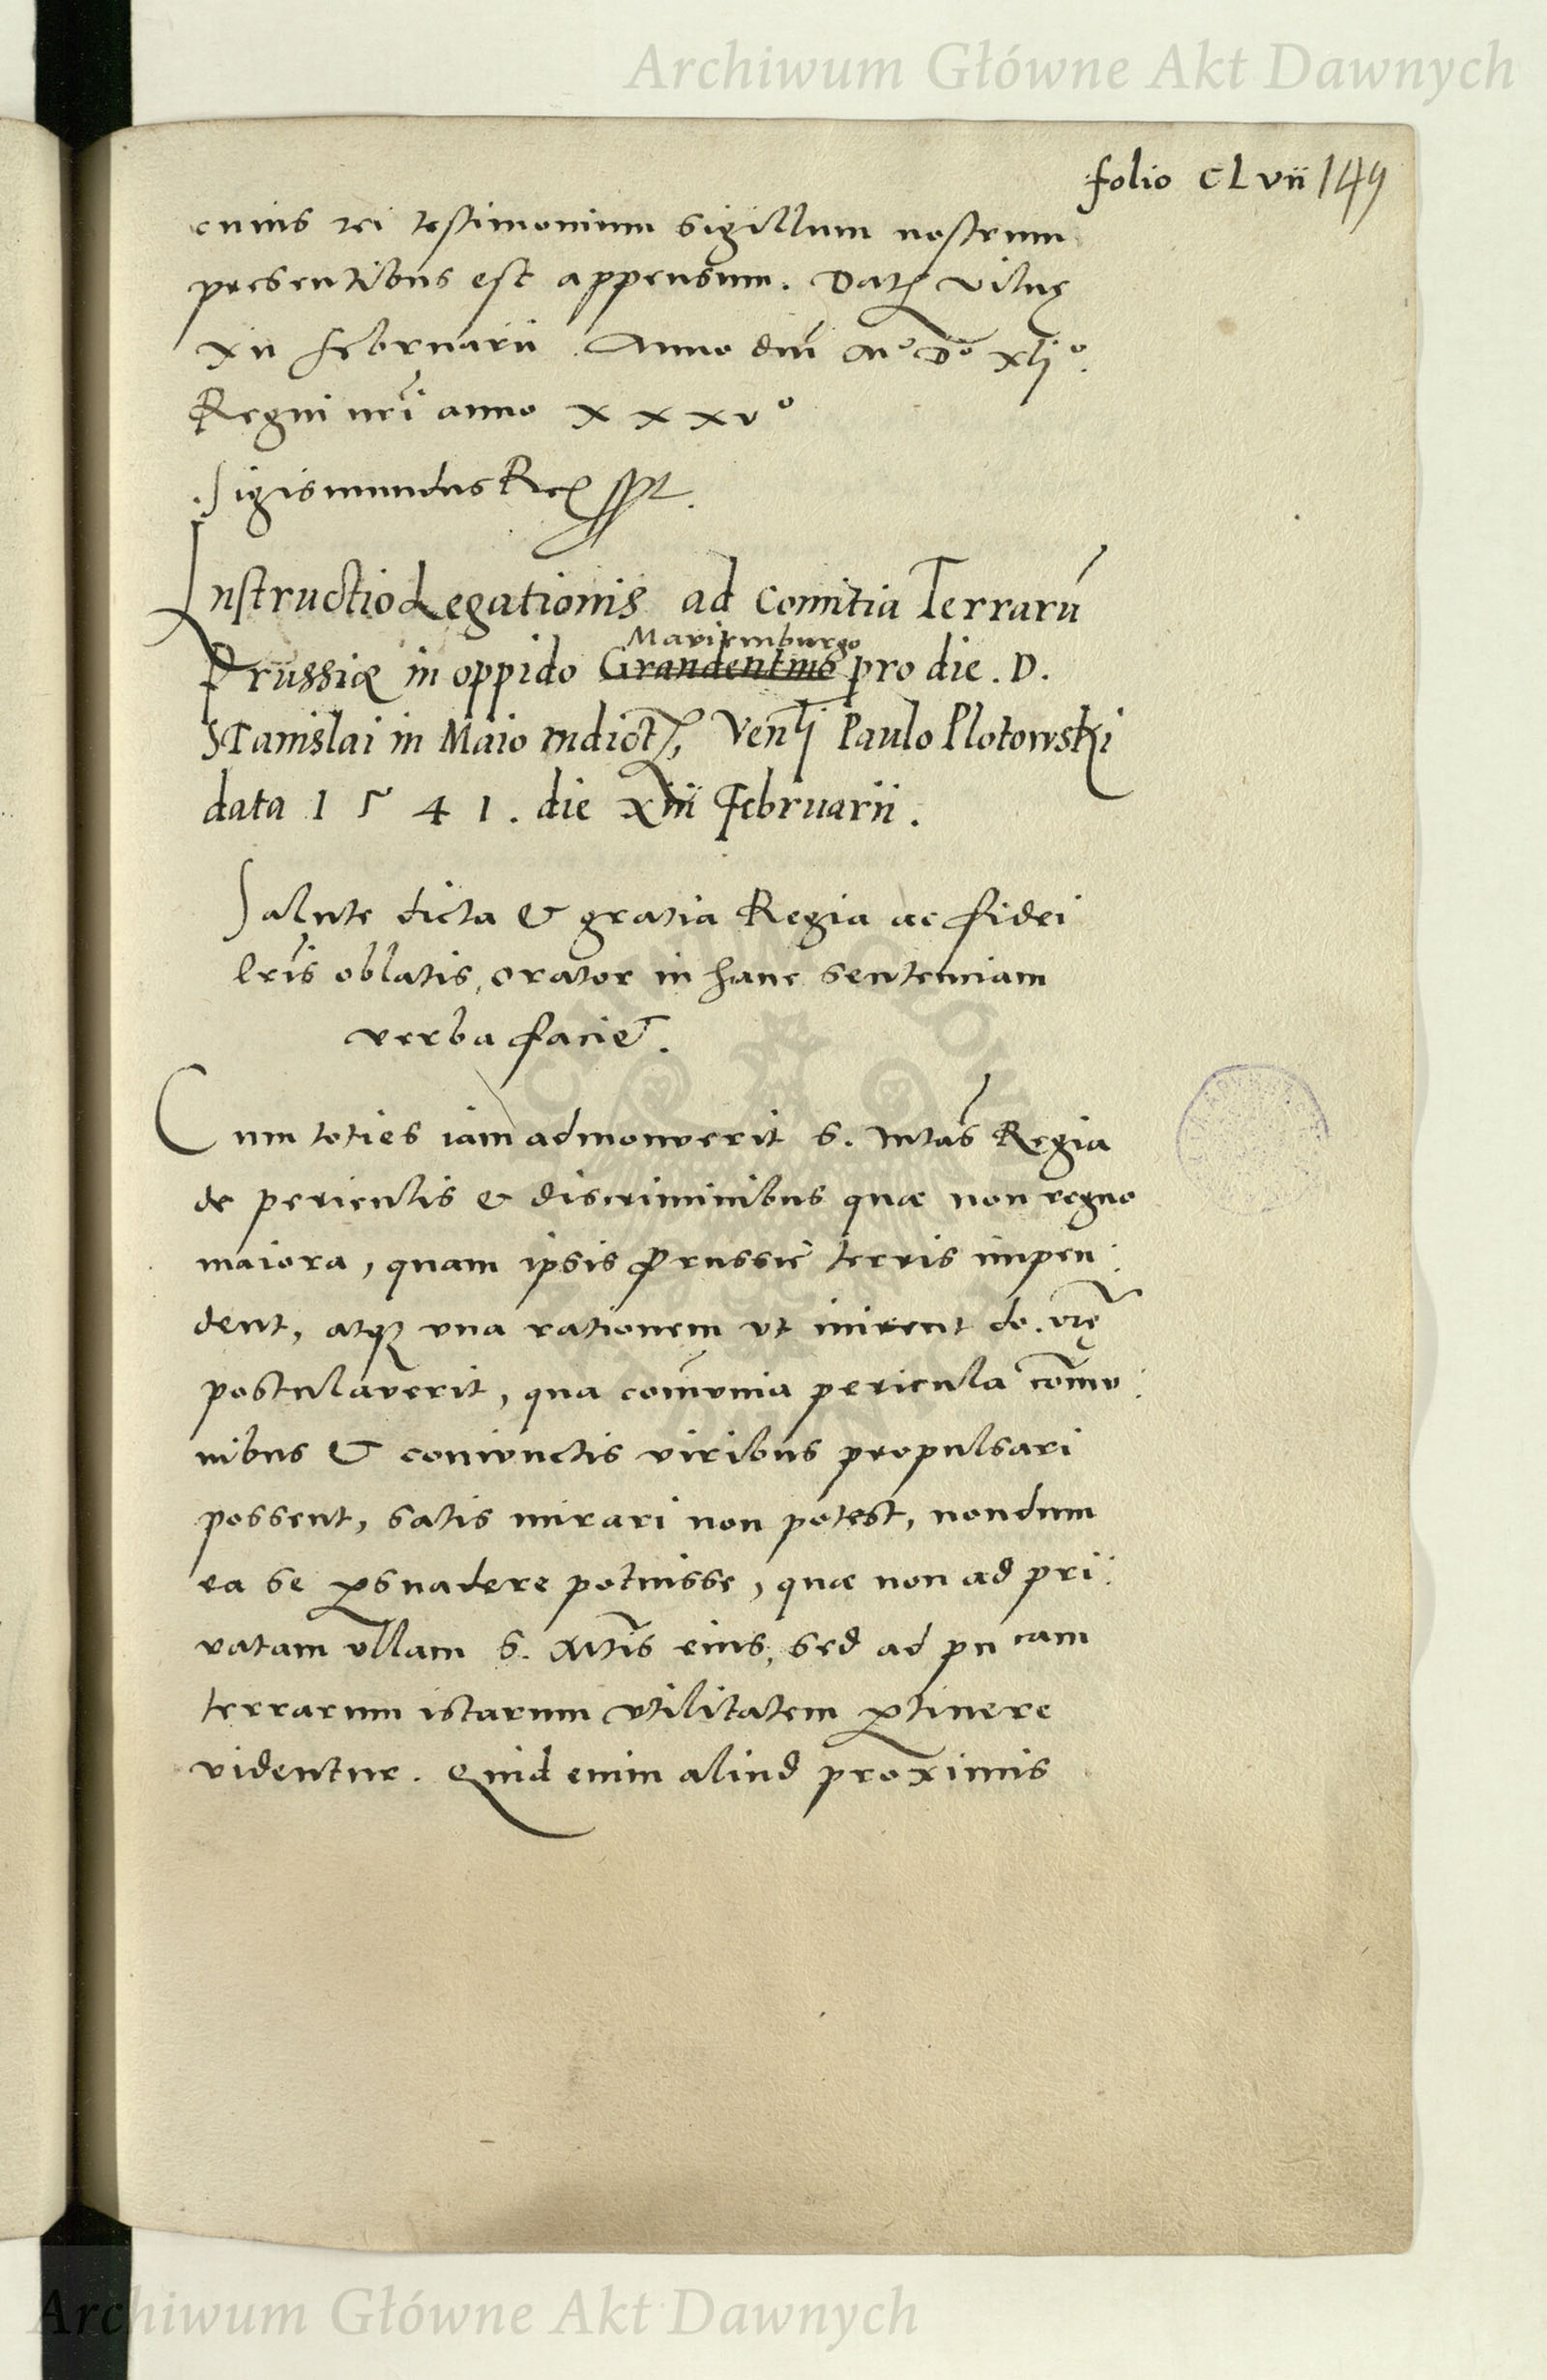 Archiwum Główne Akt Dawnych
folio CLvii 149
cuius rei testimonium sigillum nostrum
presentibus est appensum. Dat Vilnę
xii februarii. Anno dnī Mº Dº xljº.
Regni nrī anno xxxvº
Sigismundus Rex sst.
Instructio Legationis ad Comitia Terrarū
Marienburgo
Prussiæ in oppido Graudentino pro die. D.
Stanislai in Maio indict, Venlj Paulo Plotowski
data 1541. die xiii Februarii.
Salute dicta & gratia Regia ac fidei
lrīs oblatis, orator in hanc sentenciam
verba faciet.
Cum toties iam admonuerit S. Mtās Regia
de periculis & discriminibus quæ non regno
maiora, quam ipsis Prussie terris impen:
dent, atq; una rationem ut inirent do. vrę
postulaverit, qua comunia pericula comu:
nibus & coniunctis viribus propulsari
possent, satis mirari non potest, nondum
ea se psuadere potuisse, quæ non ad pri:
vatam ullam S. Mtis eius, sed ad pu cam
terrarum istarum utilitatem ptinere
videntur. Quid enim aliud proximis
Archiwum Główne Akt Dawnych